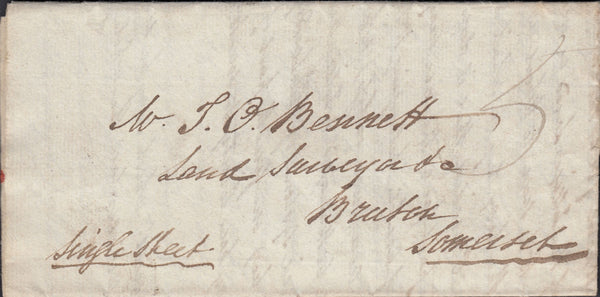 Mr. T. O. Bennett
Land Surveyor &c
Bruton
Somerset
Single Sheet
5